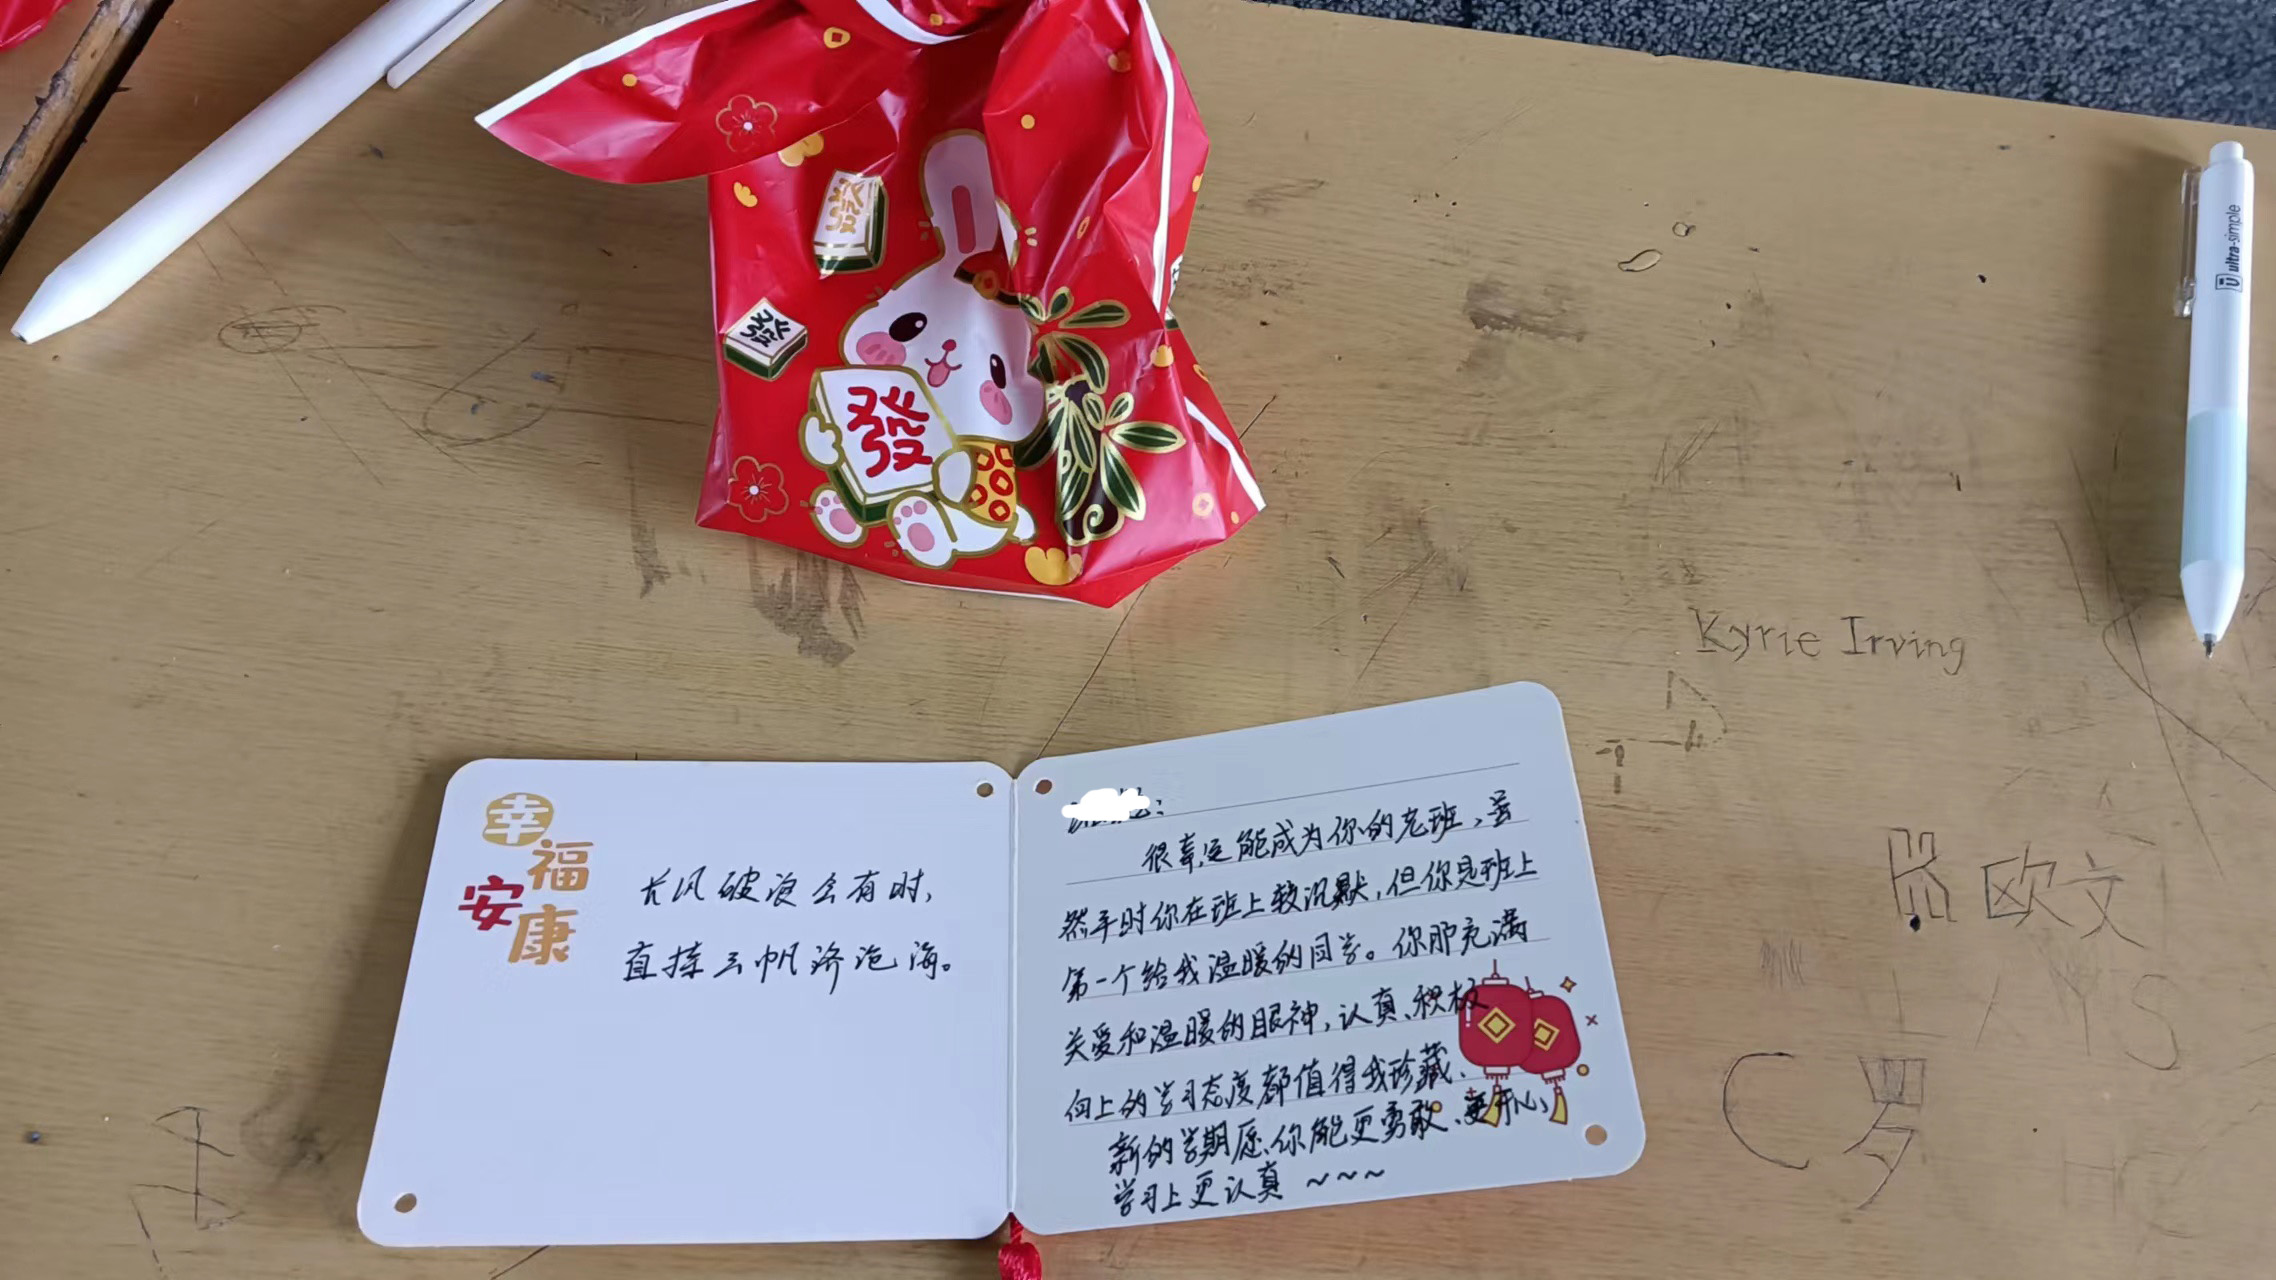 發
發
發
ultra-simple
Kyrie Irving
欧文
C罗
幸福
安康
长风破浪会有时，
直挂云帆济沧海。
很幸运能成为你的老班，虽
然平时你在班上较沉默，但你是班上
第一个给我温暖的同学。你那充满
关爱和温暖的眼神，认真、积极
向上的学习态度都值得我珍藏、
新的学期愿你能更勇敢、更开心、
学习上更认真 ~~~~